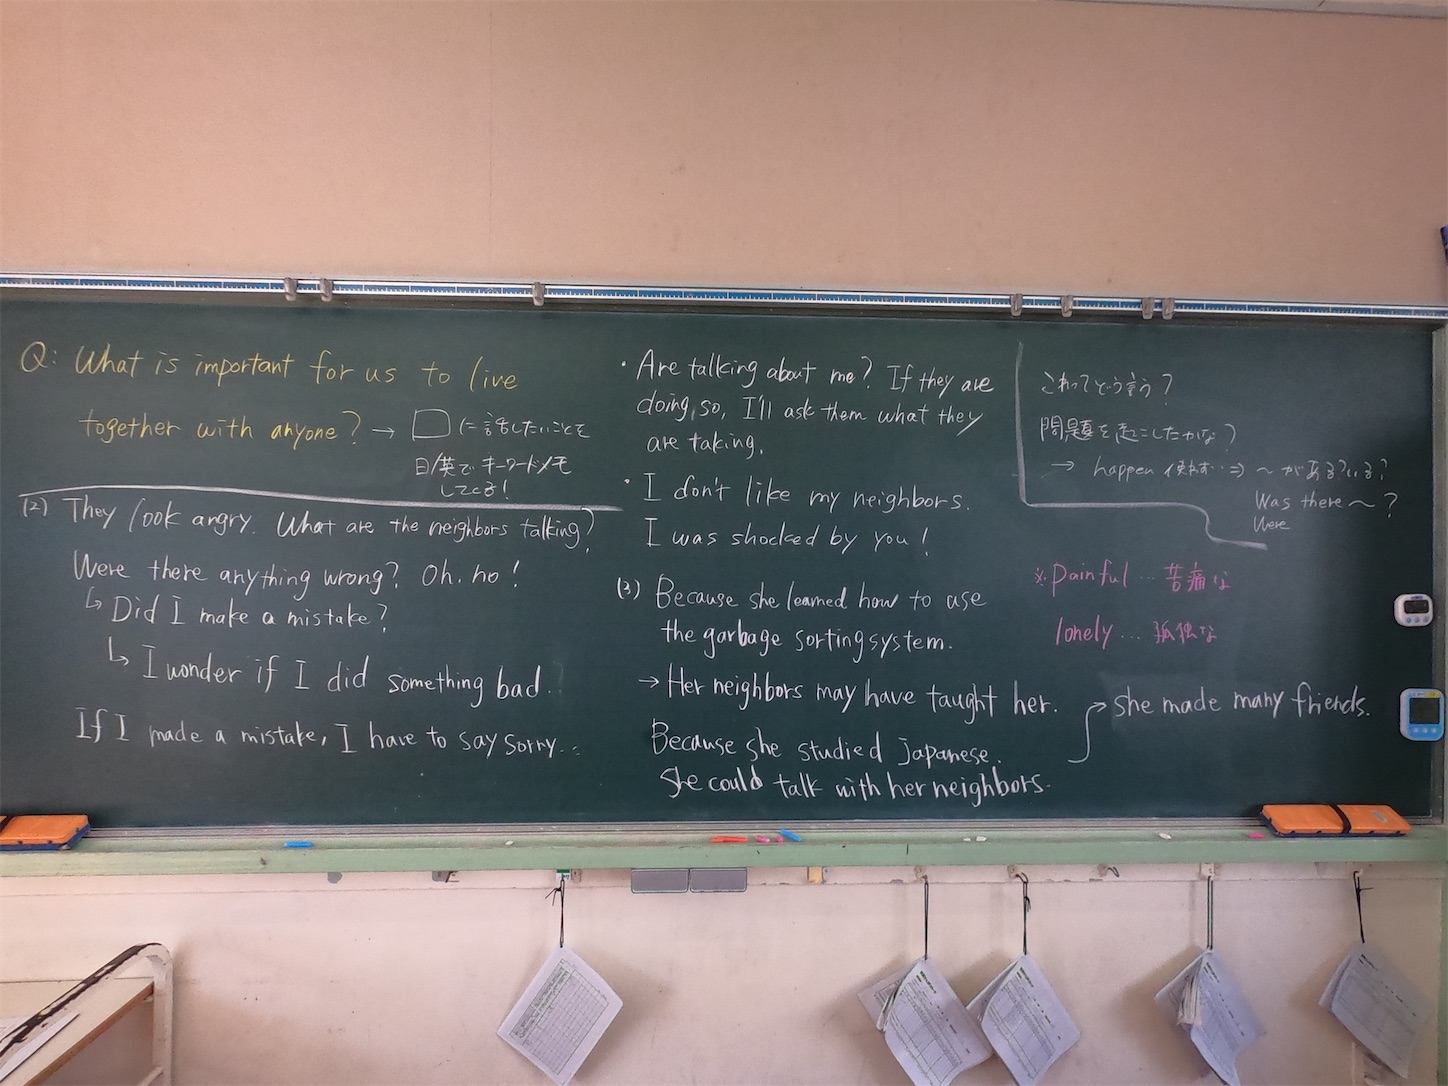 Q: What is important for us to live
together with anyone? → □に話したいことを
日/英でキーワードメモ
してこる!
(2) They look angry. What are the neighbors talking?
Were there anything wrong? Oh. no!
↳ Did I make a mistake?
↳ I wonder if I did something bad.
If I made a mistake, I have to say sorry...
・Are talking about me? If they are
doing so, I'll ask them what they
are taking.
・I don't like my neighbors.
I was shocked by you!
(3) Because she learned how to use
the garbage sorting system.
→ Her neighbors may have taught her.
Because she studied Japanese.
She could talk with her neighbors.
→ she made many friends.
これってどう言う?
問題を起こしたかな?
→ happen 使わず‥⇒ 〜がある?いる?
Was there 〜?
Were
※painful … 苦痛な
lonely … 孤独な